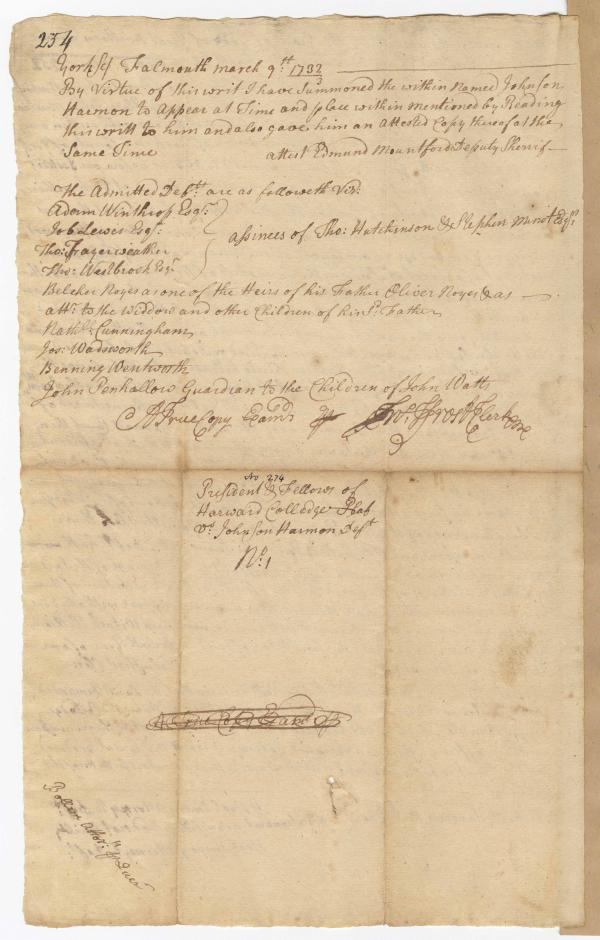 234
York ss/ Falmouth march 9th 1732/3
By Virtue of this writ I have Summoned the within Named Johnson
Harmon to Appear at Time and place within mentioned by Reading
this writt to him and also gave him an Attested Copy thereof at the
Same Time attest Edmund Mountford Deputy Sherrif
The Admitted Defts are as followeth Viz:
Adam Winthrop Esqr.
Job Lewis Esqr. assinees of Tho: Hutchinson & Stephen Minot Esqrs
Tho: Fayerweather
Tho: Westbrook Esqr
Belcher Noyes as one of the Heirs of his Father Oliver Noyes & as
attr. to the Widdow and other Children of his sd. Father
Nathll Cunningham
Jos: Wadsworth
Benning Wentworth
John Penhallow Guardian to the Children of John Watts
A True Copy Examd P Jos: Frost Clerk
No 274
President & Fellows of
Harward Colledge
vs Johnson Harmon Deft
No. 1
A True Copy Examd P